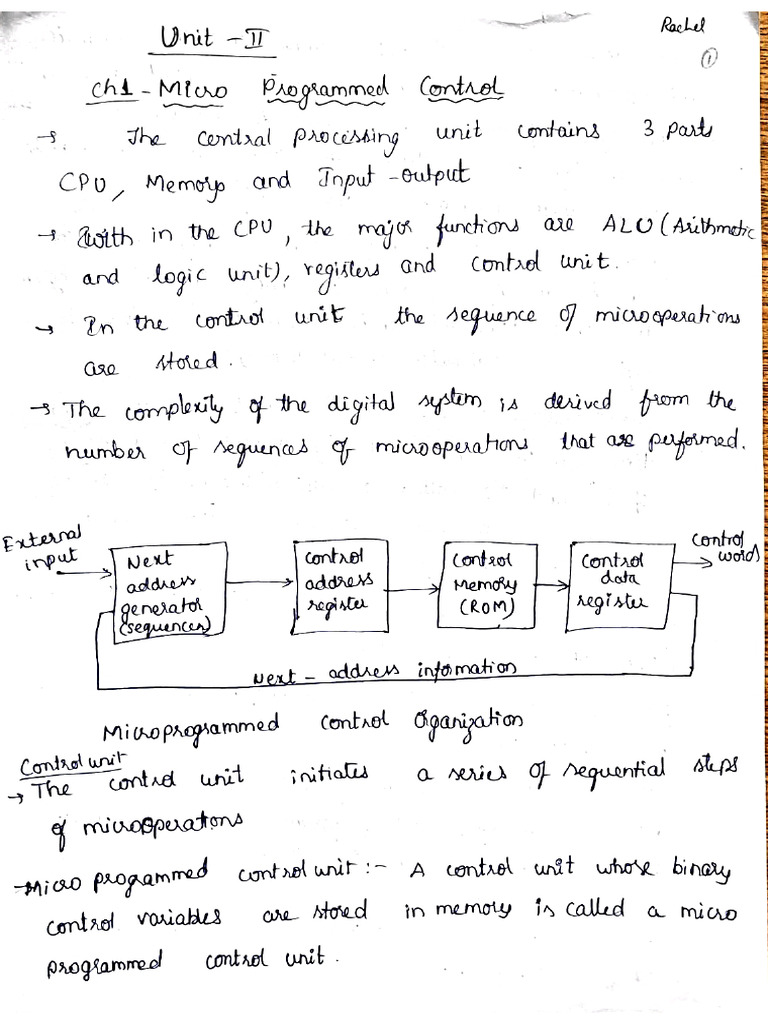 Rachel
1
Unit - II
Ch1 - Micro Programmed Control
→ The central processing unit contains 3 parts
CPU, Memory and Input - output
→ with in the CPU, the major functions are ALU (Arithmetic
and logic unit), registers and control unit.
→ In the control unit the sequence of microoperations
are stored.
→ The complexity of the digital system is derived from the
number of sequences of microoperations that are performed.
External
input
Next
address
generator
(sequencer)
control
address
register
Control
Memory
(ROM)
Control
data
register
control
word
Next - address information
Microprogrammed control Organization
Control unit
→ The control unit initiates a series of sequential steps
of microoperations
→ Micro programmed control unit :- A control unit whose binary
control variables are stored in memory is called a micro
programmed control unit.